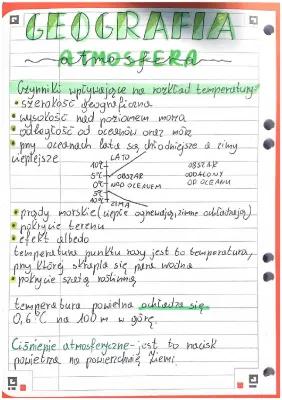 GEOGRAFIA
ATMOSFERA
atmosfera
Czynniki wpływające na rozkład temperatury:
• szerokość geograficzna
• wysokość nad poziomem morza
• odległość od oceanów oraz mórz
• przy oceanach lata są chłodniejsze a zimy
cieplejsze
LATO
10°
5°
0°C
5°
10°
OBSZAR
NAD OCEANEM
OBSZAR
ODDALONY
OD OCEANU
ZIMA
• prądy morskie (ciepłe ogrzewają, zimne ochładzają)
• pokrycie terenu
• efekt albedo
temperatura punktu rosy jest to temperatura,
przy której skrapla się para wodna
• pokrycie szatą roślinną
temperatura powietrza ochładza się
0,6°C na 100 m w górę.
Ciśnienie atmosferyczne - jest to nacisk
powietrza na powierzchnię Ziemi.